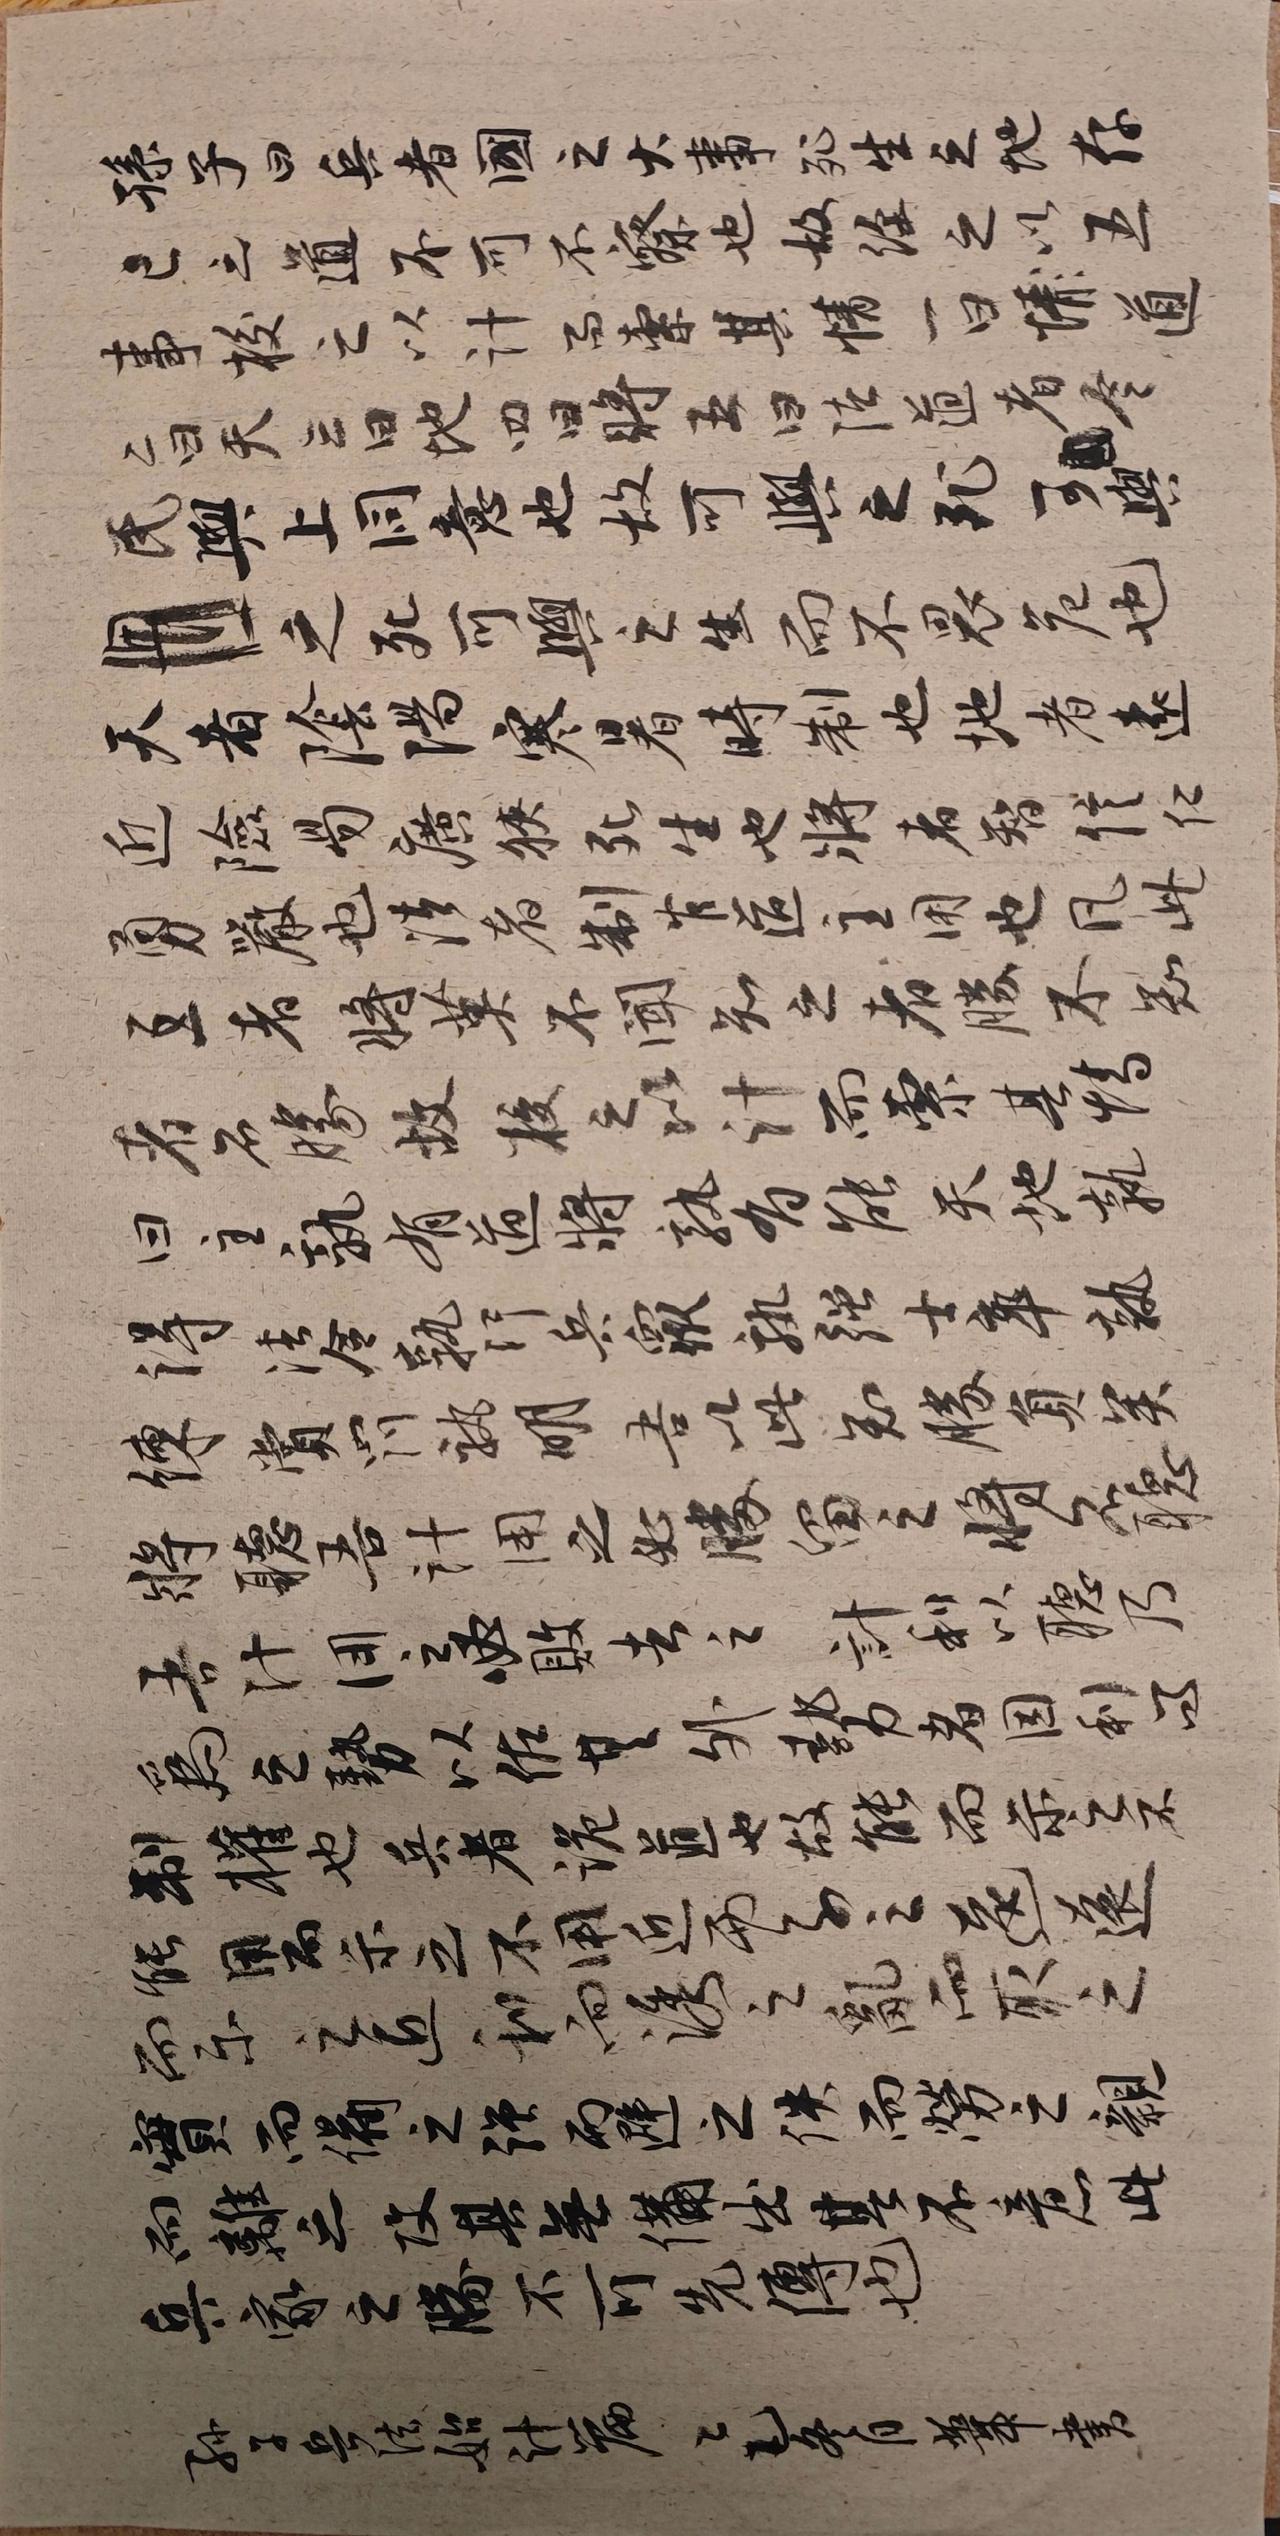 孫子曰兵者國之大事死生之地存
亡之道不可不察也故經之以五
事校之以計而索其情一曰情道
二曰天三曰地四曰將五曰法道者令
民與上同意也故可與之死可與
之死可與之生而不畏危也
天者陰陽寒暑時制也地者遠
近險易廣狹死生也將者智信仁
勇嚴也法者制官道主用也凡此
五者將莫不聞知之者勝不知
者不勝故校之以計而索其情
曰主孰有道將孰有能天地孰
得法令孰行兵衆孰强士卒孰
練賞罰孰明吾以此知勝負矣
將聽吾計用之必勝留之將不聽
吾計用之必敗去之計利以聽乃
爲之勢以佐其外勢者因利而
制權也兵者詭道也故能而示之不
能用而示之不用近而示之遠遠
而示之近利而誘之亂而取之
實而備之强而避之佚而勞之親
而離之攻其無備出其不意此
兵家之勝不可先傳也
孫子兵法始計篇 乙巳冬月華書